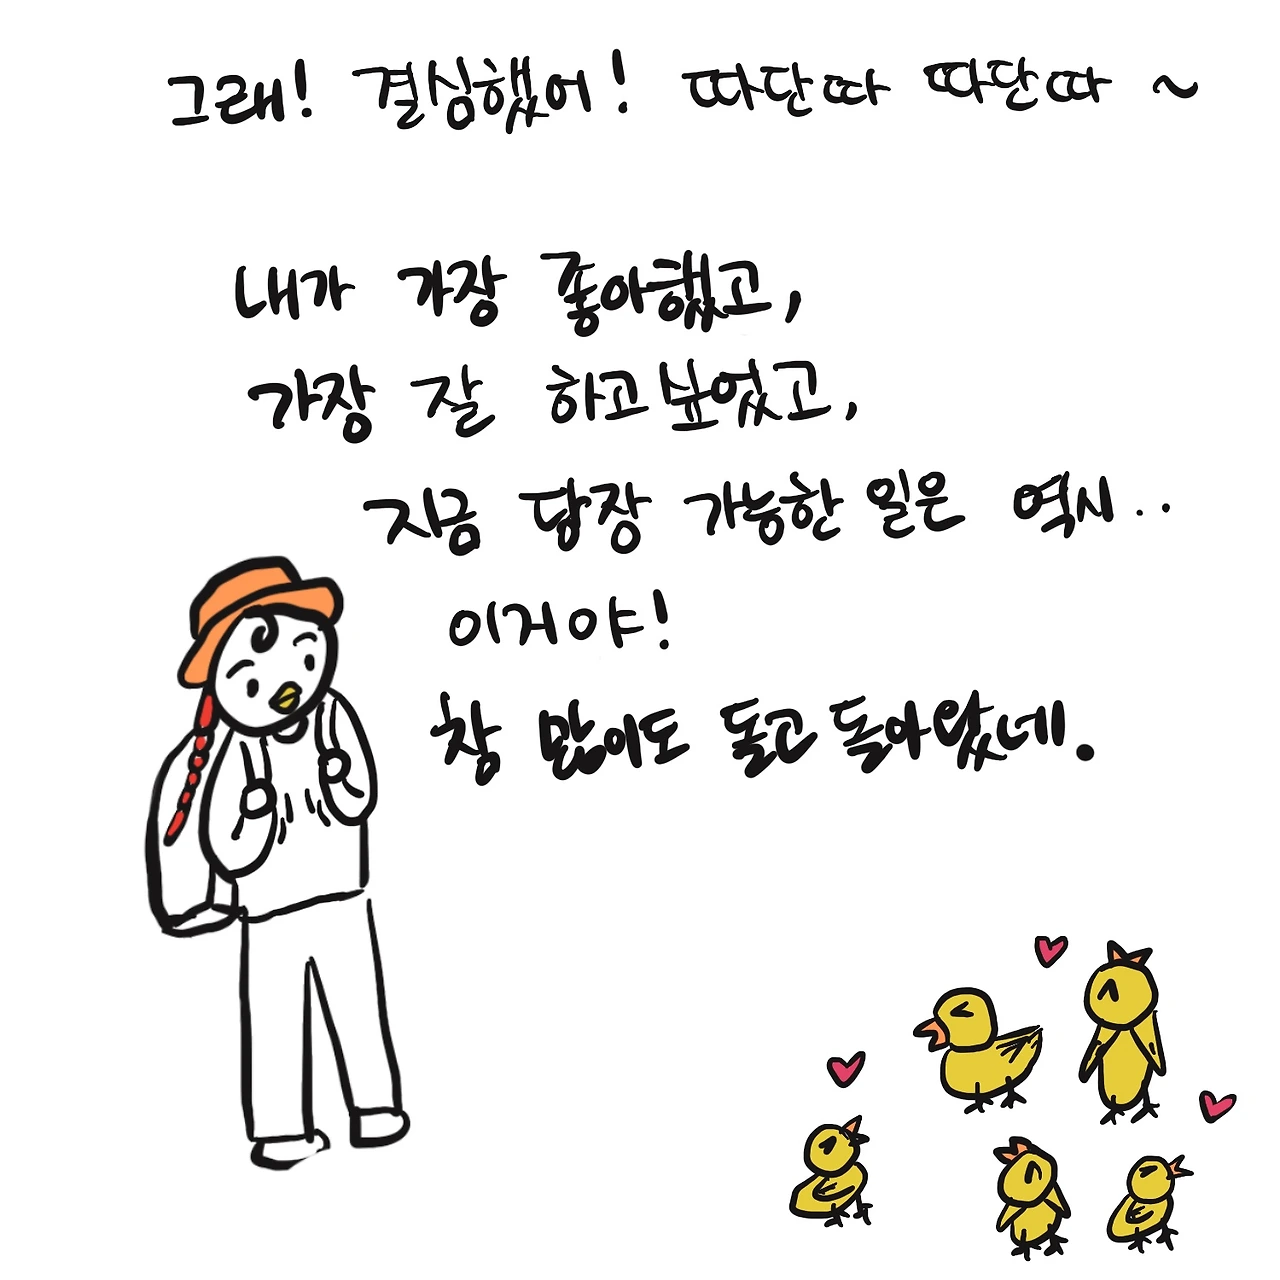 그래! 결심했어! 따단따 따단따 ~
내가 가장 좋아했고,
가장 잘 하고싶었고,
지금 당장 가능한 일은 역시..
이거야!
참 많이도 돌고 돌아왔네.